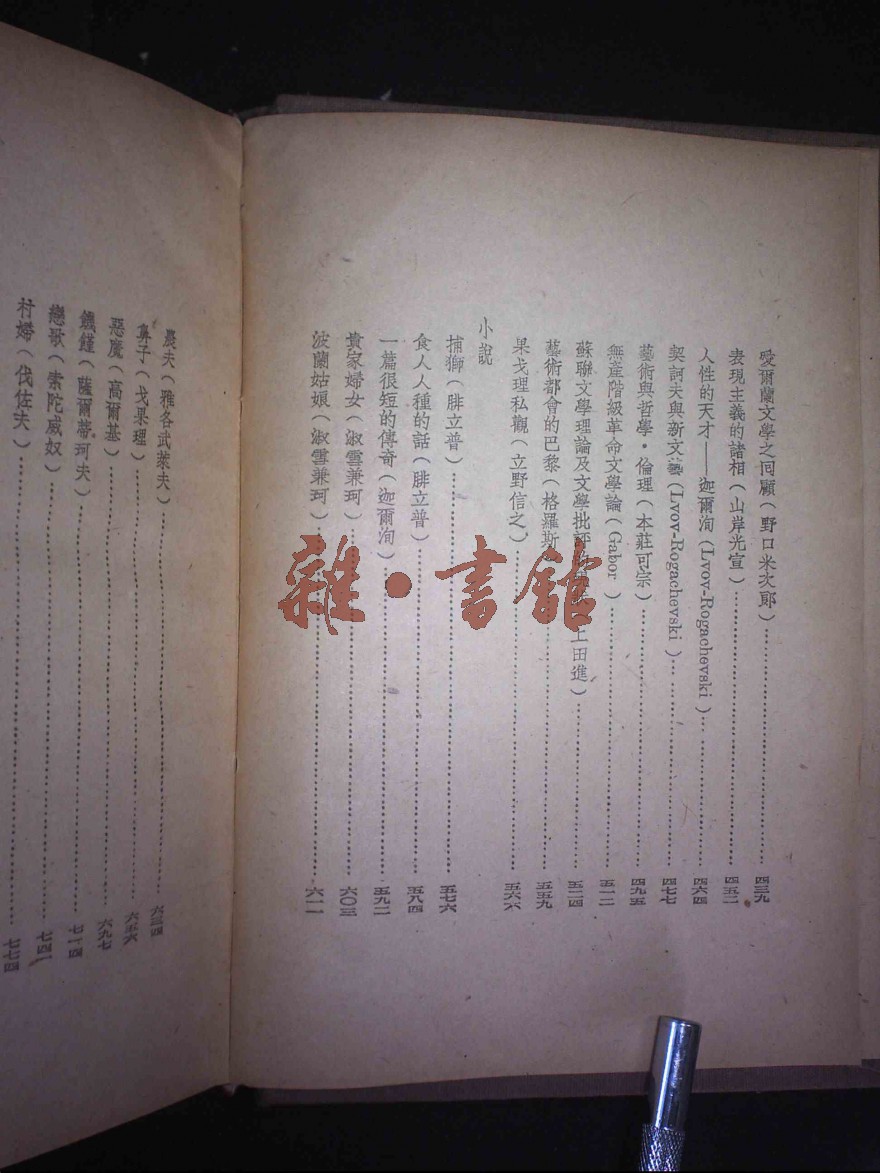 愛爾蘭文學之回顧(野口米次郎)……四三九
表現主義的諸相(山岸光宣)……四五二
人性的天才——迦爾洵(Lvov-Rogachevski)……四六四
契訶夫與新文藝(Lvov-Rogachevski)……四七七
藝術與哲學・倫理(本莊可宗)……四九五
無產階級革命文學論(Gabor)……五一二
蘇聯文學理論及文學批評 上田進)……五二四
藝術都會的巴黎(格羅斯……五五九
果戈理私觀(立野信之)……五六六
小說
捕獅(腓立普)……五七六
食人人種的話(腓立普)……五八四
一篇很短的傳奇(迦爾洵)……五九二
貴家婦女(淑雪兼珂)……六〇三
波蘭姑娘(淑雪兼珂)……六一一
農夫(雅各武萊夫)……六三四
鼻子(戈果理)……六五六
惡魔(高爾基)……六九七
饑饉(薩爾蒂珂夫)……七一四
戀歌(索陀威奴)……七四一
村婦(伐佐夫)……七七四
雜・書館